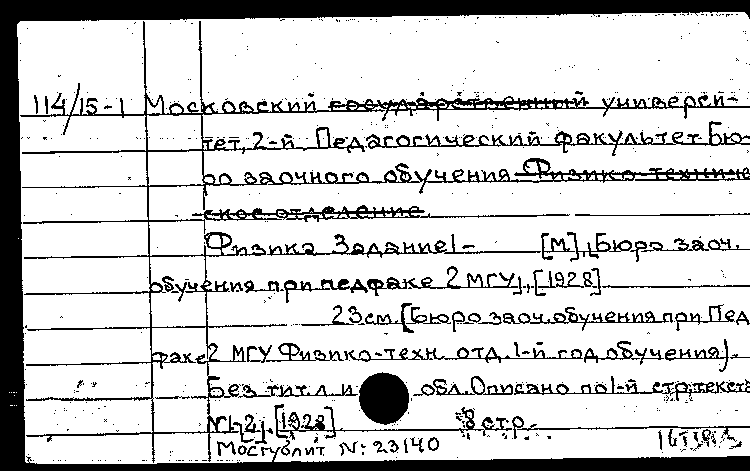 114/15-1 Московский государственный универси-
тет, 2-й. Педагогический факультет. Бю-
ро заочного обучения. Физико-техниче
ское отделение.
Физика Задание 1- [М], [Бюро заоч.
обучения при педфаке 2 МГУ], [1928]
23см. [Бюро заоч. обучения при Пед
факе 2 МГУ Физико-техн. отд. 1-й год обучения].
Без тит. л. и обл. Описано по 1-й стр. текста
№1-2]. [1928] 8 стр.
Мосгублит №: 23140